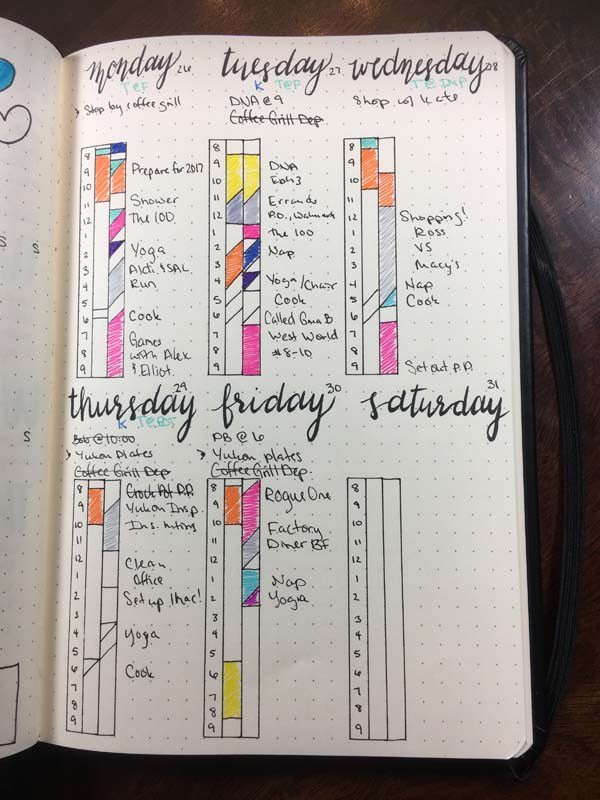 monday 26
TEF
> Stop by coffee grill
8
9
10
11
12
1
2
3
4
5
6
7
8
9
Prepare for 2017
Shower
The 100
Yoga
Aldi
Run
Cook
Games
with Alex
& Elliot
tuesday, 27
K TEF
DNA @ 9
Coffee Grill Dep.
8
9
10
11
12
1
2
3
4
5
6
7
8
9
DNA
Errands
P.O., Walmart
The 100
Nap
Yoga/Chair
Cook
Called Gma B
West World
#8-10
wednesday 28
Shop w/ Kate
8
9
10
11
12
1
2
3
4
5
6
7
8
9
Shopping!
Ross
VS
Macy's
Nap
Cook
Set out P.P.
thursday 29
K
Bob @ 10:00
> Yukon Plates
Coffee Grill Dep
8
9
10
11
12
1
2
3
4
5
6
7
8
9
Crock Pot P.P.
Yukon Insp.
Clean
Office
Set up iMac!
Yoga
Cook
friday 30
PB @ 6
> Yukon plates
Coffee Grill Dep.
8
9
10
11
12
1
2
3
4
5
6
7
8
9
Rogue One
Factory
Diner BF
Nap
Yoga
saturday 31
8
9
10
11
12
1
2
3
4
5
6
7
8
9
S
S
S